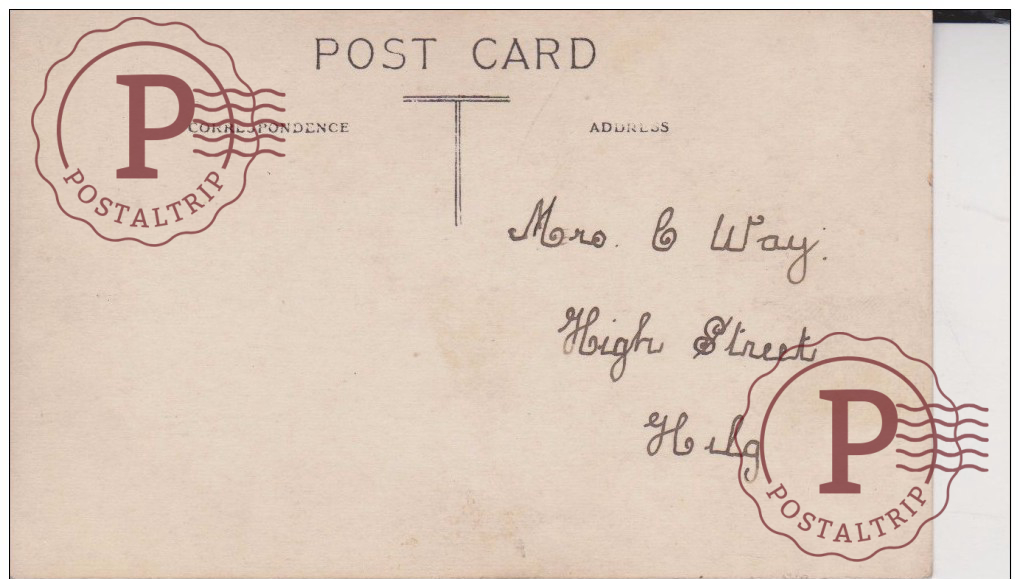 POST CARD
CORRESPONDENCE
ADDRESS
Mrs. C Way.
High Street
P
POSTALTRIP
P
POSTALTRIP